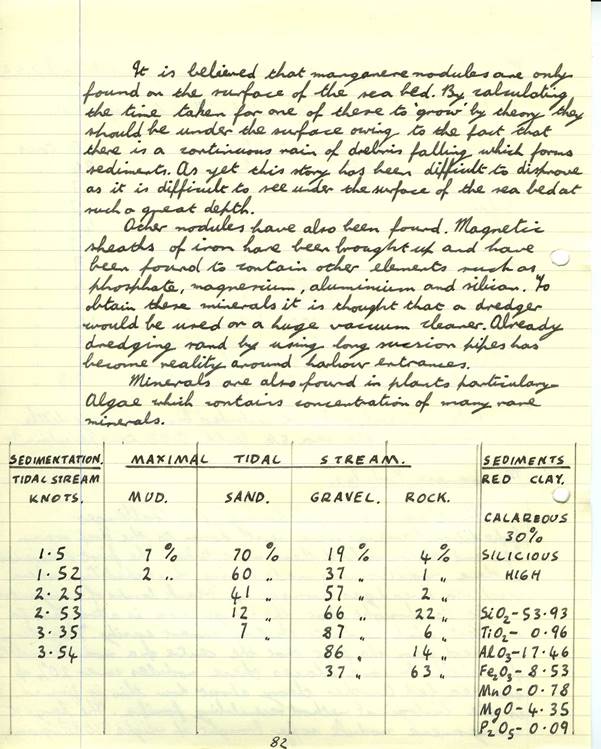 It is believed that manganese nodules are only
found on the surface of the sea bed. By calculating
the time taken for one of these to 'grow' by theory they
should be under the surface owing to the fact that
there is a continuous rain of drebris falling which forms
sediments. As yet this story has been difficult to disprove
as it is difficult to see under the surface of the sea bed at
such a great depth.
Other nodules have also been found. Magnetic
sheaths of iron have been brought up and have
been found to contain other elements such as,
phosphate, magnesium, aluminium and silican. To
obtain these minerals it is thought that a dredger
would be used or a huge vacuum cleaner. Already
dredging sand by using long sucsion pipes has
become reality around harbour entrances.
Minerals are also found in plants particulary
Algae which contains concentration of many rare
minerals.
SEDIMENTATION. MAXIMAL TIDAL STREAM. SEDIMENTS
TIDAL STREAM RED CLAY.
KNOTS. MUD. SAND. GRAVEL. ROCK.
CALAREOUS
30%
1·5 7 % 70 % 19 % 4 % SILICIOUS
1·52 2 " 60 " 37 " 1 " HIGH
2·25 41 " 57 " 2 "
2·53 12 " 66 " 22 " SiO2 - 53·93
3·35 7 " 87 " 6 " TiO2 - 0·96
3·54 86 " 14 " AlO3 - 17·46
37 " 63 " Fe2O3 - 8·53
MnO - 0·78
MgO - 4·35
P2O5 - 0·09
82